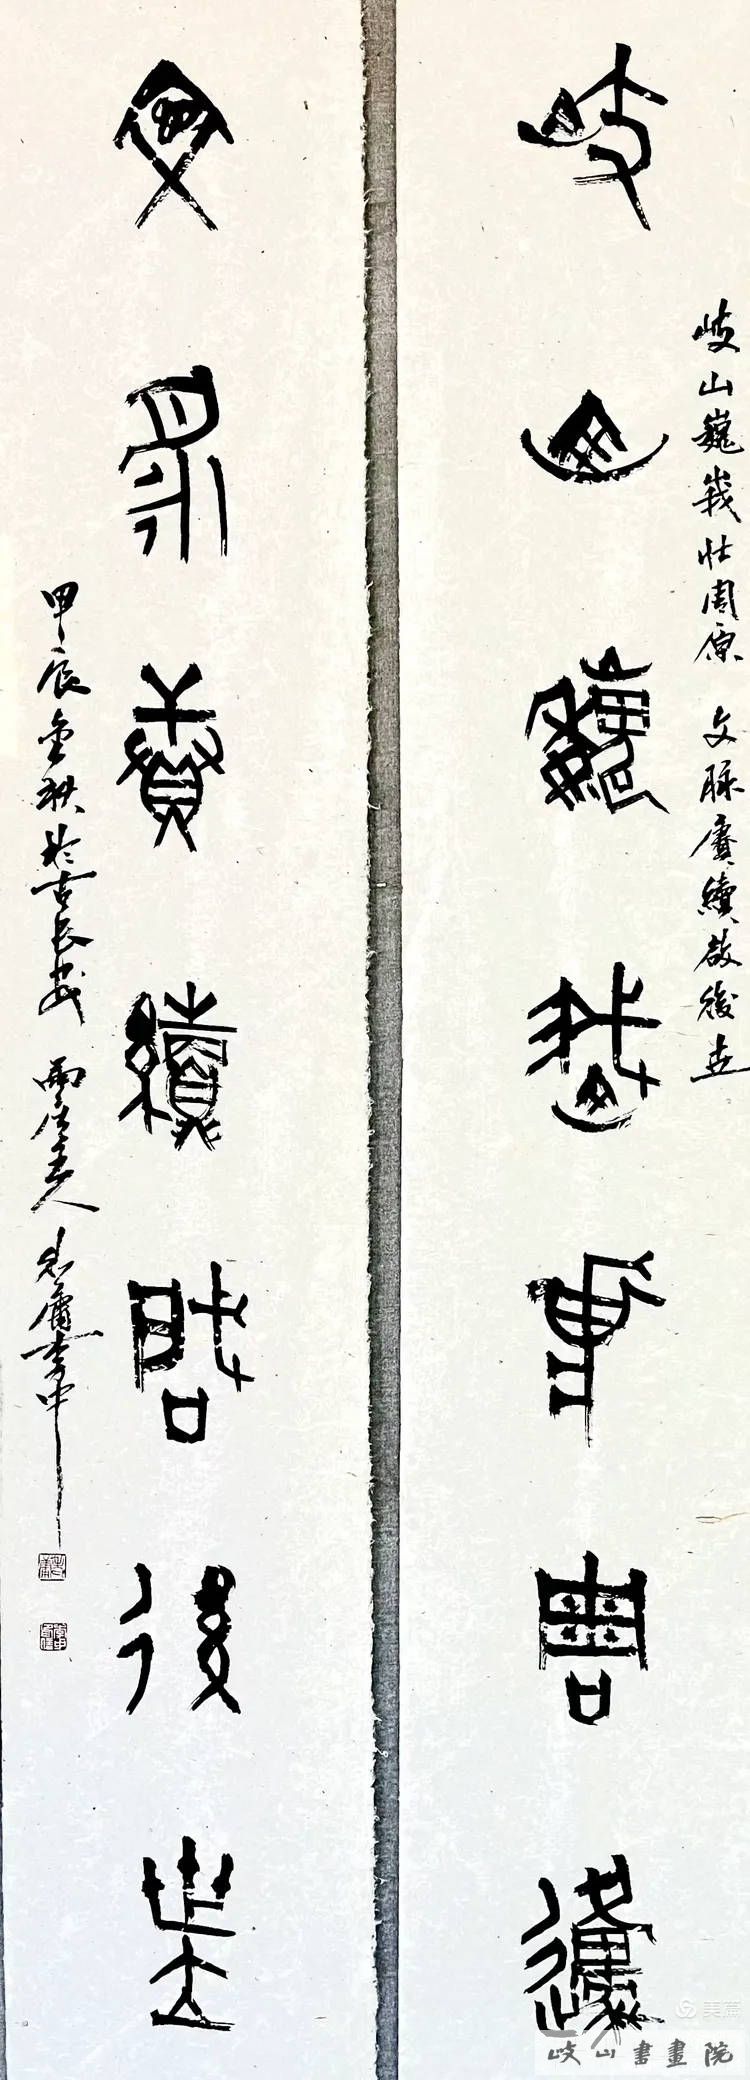 岐山巍峩壮周原 文脉賡續啟後世
岐山巍峩壮周原
文脉賡續啟後世
甲辰金秋於古長安 主人 李中
美篇
岐山書畫院